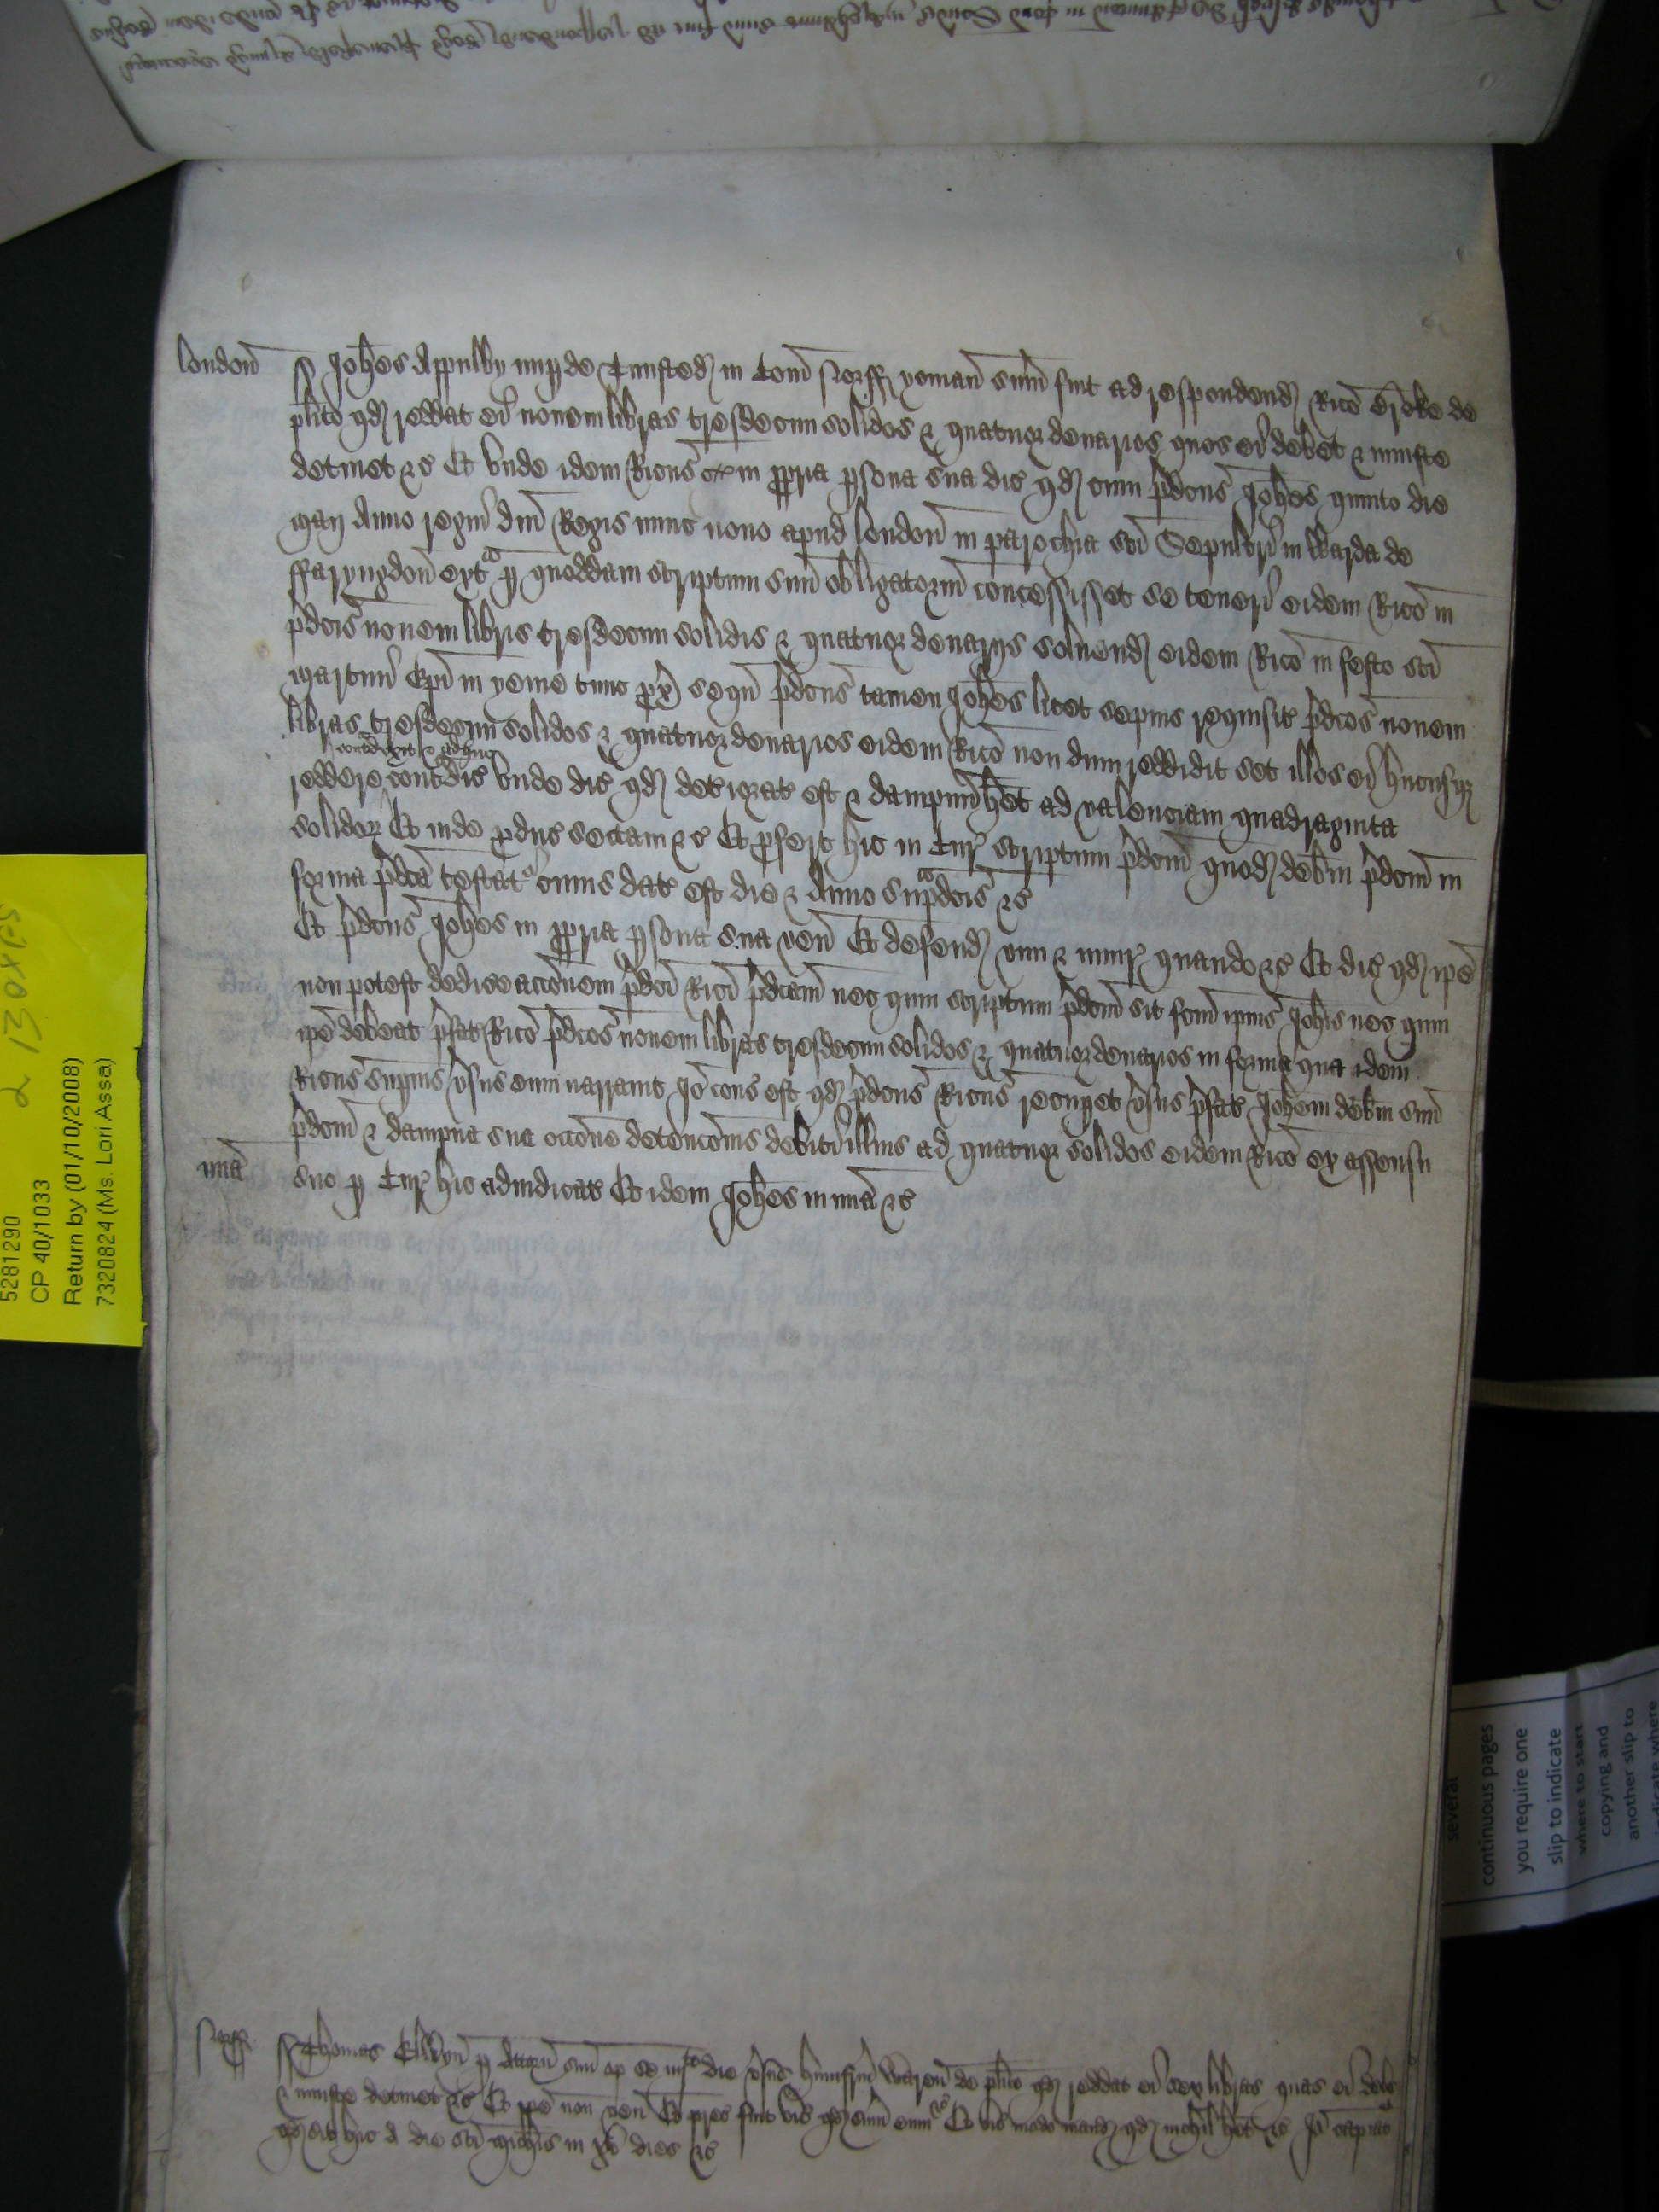 london̄ ss Joh̄es Appulby nup̱ de Tunsted in Com̄ Norff yoman sum̄ fuit ad respondend Ric̄o Croke de
pl̄ito qd reddat ei nouem libras tresdecim solidos & quatuor denarios quos ei debet & iniuste
detinet &c Et unde idem Ric̄us in p̱pria p̱sona sua dic̄ qd cum p̄dc̄us Joh̄es quinto die
Maij Anno regni dn̄i Regis nunc nono apud london̄ in parochia sc̄i Sepulcri in Warda de
ffaryngdon̄ ext̄ p̱ quoddam scriptum suū obligatoriū concessisset se teneri eidem Ric̄o in
p̄dc̄is nouem libris tresdecim solidis & quatuor denarijs soluend eidem Ric̄o in festo sc̄i
Martini Ep̄i in yeme tunc px̄ seqū p̄dc̄us tamen Joh̄es licet sepius requisit̄ p̄dc̄os nouem
libras tresdecim solidos & quatuor denarios eidem Ric̄o non dum reddidit set illos ei hucusq̱
contradixit & adhuc
reddere cont̄dic̄ unde dic̄ qd det̄iorat̄ est & dampnū h̄et ad valenciam quadraginta
solidor̄ Et inde p̱duc̄ sectam &c Et p̱fert hic in Cur̄ scriptum p̄dc̄m̄ quod deb̄m p̄dc̄m̄ in
forma p̄dc̄a testat̄ cuius dat̄ est die & Anno sup̄dc̄is &c
Et p̄dc̄us Joh̄es in p̱pria p̱sona sua ven̄ Et defend vim & iniur̄ quando &c Et dic̄ qd ip̄e
non potest dedicere acc̄onem p̄dc̄i Ric̄i p̄dc̄am nec quin scriptum p̄dc̄m̄ sit fc̄m̄ ip̄ius Joh̄is nec quin
ip̄e debeat p̄fat̄ Ric̄o p̄dc̄os nouem libras tresdecim solidos & quatuor denarios in forma qua idem
Ric̄us sup̱ius v̄sus eum narrauit Jō cons̄ est qd p̄dc̄us Ric̄us recup̱et v̄sus p̄fat̄ Joh̄em deb̄m suū
p̄dc̄m̄ & dampna sua occ̄one detenc̄onis debiti illius ad quatuor solidos eidem Ric̄o ex assensu
mīa suo p̱ Cur̄ hic adiudicat̄ Et idem Joh̄es in mīa &c
Norff ss Thomas Elwyn̄ p̱ attorn̄ suū op̄ se iiijto die v̄sus Humfrm̄ Waren̄ de pl̄ito qd reddat ei libras quas ei debet
& iniuste detinet &c Et ip̄e non ven̄ Et prec̄ fuit vic̄ qd sum̄ eum &c Et vic̄ modo mand qd nichil h̄et &c Jō capiat̄
qd sit hic a die sc̄i Mich̄is in xv dies &c
5281290
CP 40/1033
Return by (01/10/2008)
7320824 (Ms. Lori Assa)
several
continuous pages
you require one
slip to indicate
where to start
copying and
another slip to
indicate where